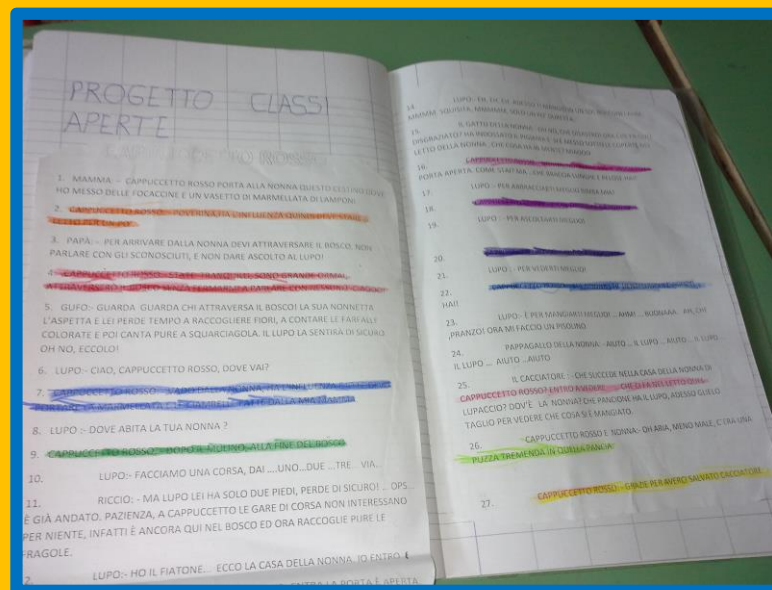 PROGETTO CLASSI
APERTE
1. MAMMA: - CAPPUCCETTO ROSSO PORTA ALLA NONNA QUESTO CESTINO DOVE
HO MESSO DELLE FOCACCONE E UN VASETTO DI MARMELLATA DI LAMPONI.
2. CAPPUCCETTO ROSSO:- POVERINA, HA L'INFLUENZA QUINDI DEVE STARE
LETTO PER UN PO'
3. PAPÀ: - PER ARRIVARE DALLA NONNA DEVI ATTRAVERSARE IL BOSCO, NON
PARLARE CON GLI SCONOSCIUTI, E NON DARE ASCOLTO AL LUPO!
4. CAPPUCCETTO ROSSO:- STATE TRANQUILLI, SONO GRANDE ORMAI,
5. GUFO:- GUARDA GUARDA CHI ATTRAVERSA IL BOSCO! LA SUA NONNETTA
L'ASPETTA E LEI PERDE TEMPO A RACCOGLIERE FIORI, A CONTARE LE FARFALLE
COLORATE E POI CANTA PURE A SQUARCIAGOLA. IL LUPO LA SENTIRÀ DI SICURO
OH NO, ECCOLO!
6. LUPO:- CIAO, CAPPUCCETTO ROSSO, DOVE VAI?
7. CAPPUCCETTO ROSSO:- VADO DALLA NONNA, HA L'INFLUENZA
LA MARMELLATA E LE CIAMBELLE FATTE DALLA MIA MAMMA
8. LUPO :- DOVE ABITA LA TUA NONNA ?
9. CAPPUCCETTO ROSSO:- DOPO IL MULINO, ALLA FINE DEL BOSCO
10. LUPO:- FACCIAMO UNA CORSA, DAI ....UNO...DUE ...TRE... VIA...
11. RICCIO: - MA LUPO LEI HA SOLO DUE PIEDI, PERDE DI SICURO! ... OPS...
È GIÀ ANDATO. PAZIENZA, A CAPPUCCETTO LE GARE DI CORSA NON INTERESSANO
PER NIENTE, INFATTI È ANCORA QUI NEL BOSCO ED ORA RACCOGLIE PURE LE
FRAGOLE.
2. LUPO:- HO IL FIATONE... ECCO LA CASA DELLA NONNA. IO ENTRO. È
LA PORTA È APERTA.
14. LUPO:- EH, EH, EH, ADESSO
15. IL GATTO DELLA NONNA:-
DISGRAZIATO? HA INDOSSATO IL PIGIAMA E SI È MESSO SOTTO LE COPERTE
LETTO DELLA NONNA,
16. CAPPUCCETTO
PORTA APERTA. COME STAI? MA ...CHE BRACCIA LUNGHE E PELOSE HAI!
17. LUPO:- PER ABBRACCIARTI MEGLIO BIMBA MIA!
18.
19. LUPO:- PER ASCOLTARTI MEGLIO!
20.
21. LUPO:- PER VEDERTI MEGLIO!
22.
HAI!
23. LUPO:- È PER MANGIARTI MEGLIO! ... AHM ... BUONAAA. AH, CHE
PRANZO! ORA MI FACCIO UN PISOLINO.
24. PAPPAGALLO DELLA NONNA: -AIUTO ... IL LUPO ... AIUTO ... IL LUPO ...
IL LUPO ... AIUTO ...AIUTO
25. IL CACCIATORE : - CHE SUCCEDE NELLA CASA DELLA NONNA DI
CAPPUCCETTO ROSSO? ENTRO A VEDERE.
LUPACCIO? DOV'È LA NONNA? CHE PANCIONE HA IL LUPO, ADESSO GUELO
TAGLIO PER VEDERE CHE COSA S'È MANGIATO.
26. - CAPPUCCETTO ROSSO E NONNA:- OH ARIA, MENO MALE, C'ERA UNA
PUZZA TREMENDA IN QUELLA PANCIA!
27. CAPPUCCETTO ROSSO:- GRAZIE PER AVERCI SALVATO CACCIATORE.